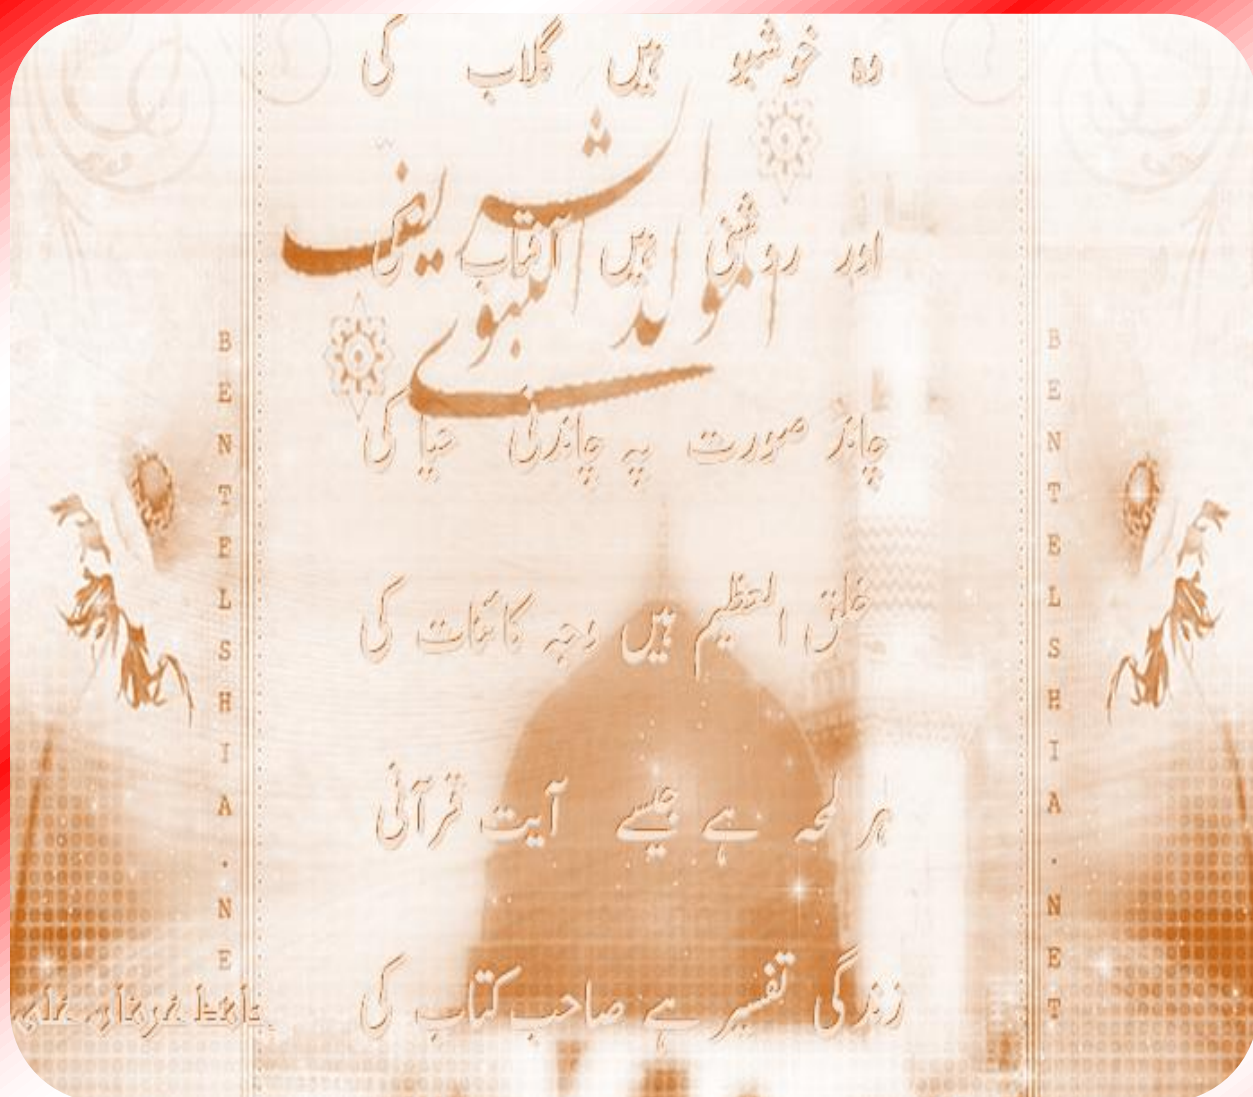 وہ خوشبو ہیں گلاب کی
المولد النبوي الشريف
اور روشنی ہیں آفتاب کی
چاند صورت پہ چاندنی حیا کی
خلق العظیم ہیں وجہ کائنات کی
ہر لمحہ ہے جیسے آیت قرآنی
زندگی تفسیر ہے صاحب کتاب کی
BENTELSHIA.NE
BENTELSHIA.NET